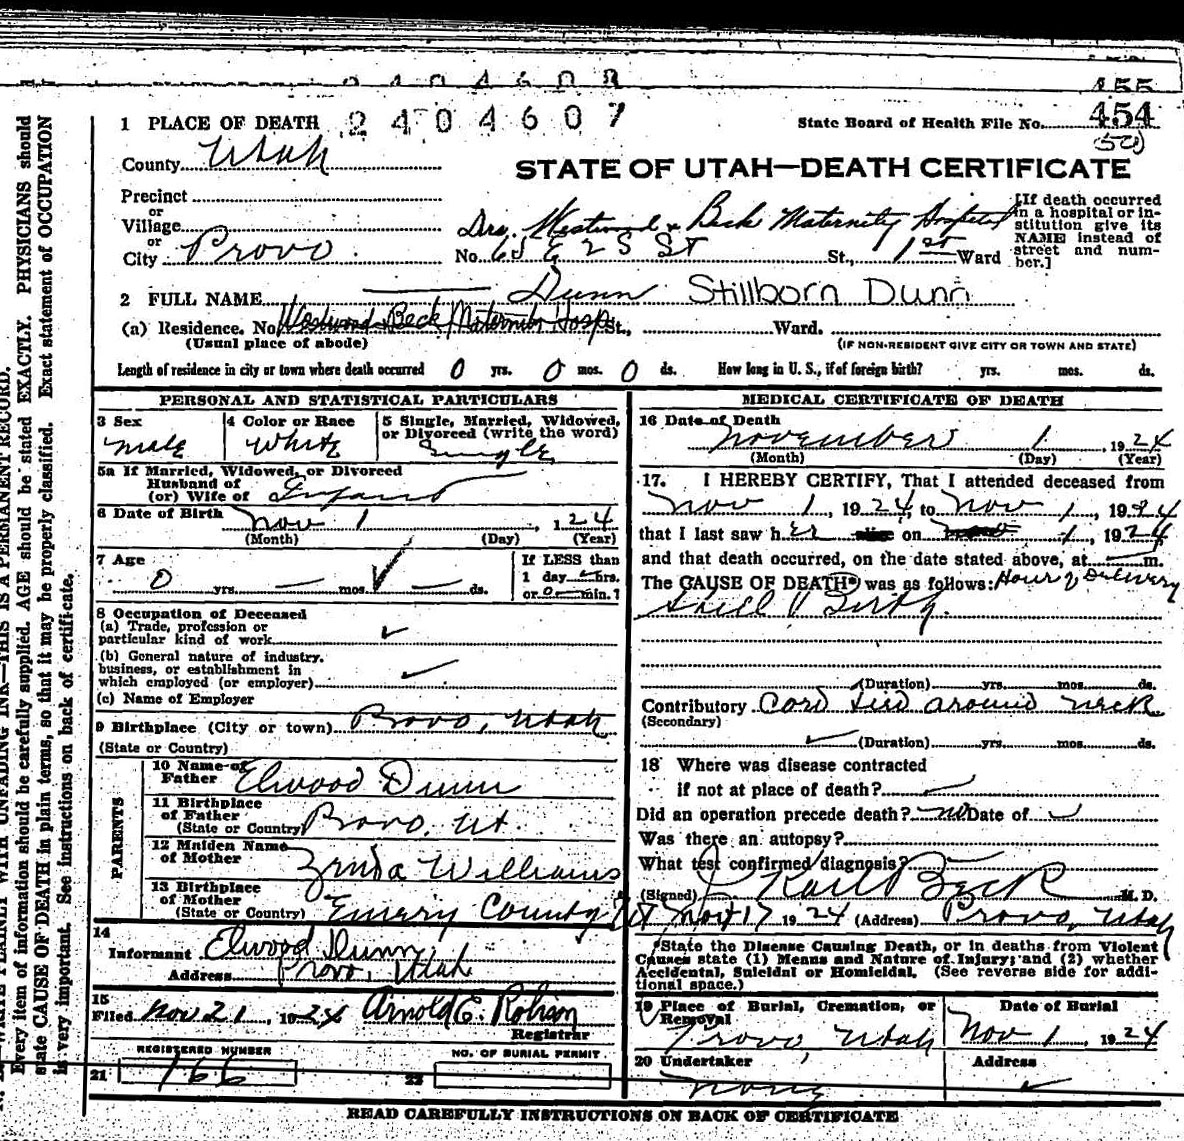 455
2404608
454
1 PLACE OF DEATH 2404607 State Board of Health File No.
County Utah
STATE OF UTAH—DEATH CERTIFICATE
Precinct
or
Village
or
City Provo
Drs. Westwood & Beck Maternity Hospital
No. 65 E 2 S St St., 1st Ward
[If death occurred in a hospital or institution give its NAME instead of street and number.]
2 FULL NAME Dunn Stillborn Dunn
(a) Residence. No. Westwood Beck Maternity Hosp St., Ward.
(Usual place of abode) (IF NON-RESIDENT GIVE CITY OR TOWN AND STATE)
Length of residence in city or town where death occurred 0 yrs. 0 mos. 0 ds. How long in U. S., if of foreign birth? yrs. mos. ds.
PERSONAL AND STATISTICAL PARTICULARS
3 Sex 4 Color or Race 5 Single, Married, Widowed, or Divorced (write the word)
male White Single
5a If Married, Widowed, or Divorced
Husband of
(or) Wife of Infant
6 Date of Birth Nov 1, 1924
(Month) (Day) (Year)
7 Age If LESS than
0 yrs. — mos. — ds. 1 day — hrs.
or 0 — min.?
8 Occupation of Deceased
(a) Trade, profession or
particular kind of work
(b) General nature of industry,
business, or establishment in
which employed (or employer)
(c) Name of Employer
9 Birthplace (City or town) Provo, Utah
(State or Country)
PARENTS
10 Name of Father Elwood Dunn
11 Birthplace of Father (State or Country) Provo, Ut.
12 Maiden Name of Mother Williams
13 Birthplace of Mother (State or Country) Emery County Ut
14
Informant Elwood Dunn
Address Provo, Utah
15
Filed Nov 21, 1924 Arnold E.
Registrar
REGISTERED NUMBER NO. OF BURIAL PERMIT
21 166 22
MEDICAL CERTIFICATE OF DEATH
16 Date of Death
November 1, 1924
(Month) (Day) (Year)
17. I HEREBY CERTIFY, That I attended deceased from
Nov 1, 1924, to Nov 1, 1924
that I last saw her alive on 1, 1924,
and that death occurred, on the date stated above, at m.
The CAUSE OF DEATH* was as follows: Hour of Delivery
Still Birth.
(Duration) yrs. mos. ds.
Contributory Cord tied around neck
(Secondary)
(Duration) yrs. mos. ds.
18 Where was disease contracted
if not at place of death?
Did an operation precede death? no Date of
Was there an autopsy?
What test confirmed diagnosis?
(Signed) Karl Beck M. D.
Nov 17 1924 (Address) Provo, Utah
*State the Disease Causing Death, or in deaths from Violent
Causes state (1) Means and Nature of Injury; and (2) whether
Accidental, Suicidal or Homicidal. (See reverse side for addi-
tional space.)
19 Place of Burial, Cremation, or Removal Date of Burial
Provo, Utah Nov 1, 1924
20 Undertaker Address
None
READ CAREFULLY INSTRUCTIONS ON BACK OF CERTIFICATE
WRITE PLAINLY WITH UNFADING INK—THIS IS A PERMANENT RECORD.
Every item of information should be carefully supplied. AGE should be stated EXACTLY. PHYSICIANS should
state CAUSE OF DEATH in plain terms, so that it may be properly classified. Exact statement of OCCUPATION
is very important. See instructions on back of certificate.